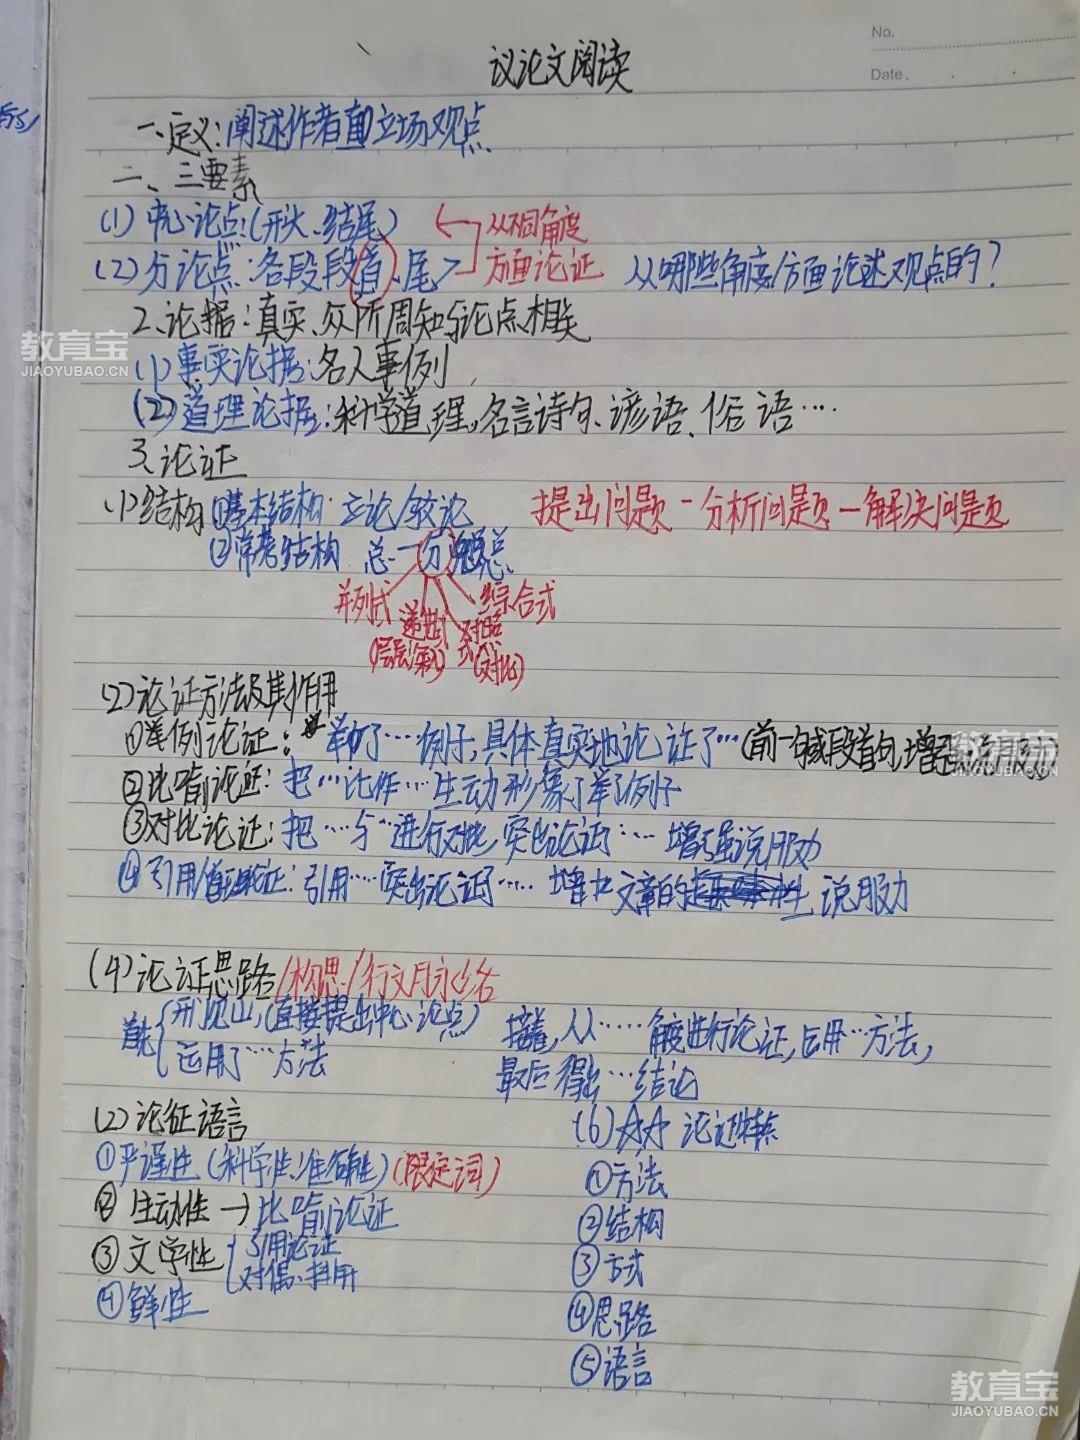 No.
Date.
议论文阅读
一、定义：阐述作者立场观点
二、三要素
(1) 中心论点：(开头、结尾)
从不同角度
方面论证
(2) 分论点：各段段首、尾
从哪些角度/方面论述观点的？
2、论据：真实、众所周知与论点相关
(1) 事实论据：名人事例
(2) 道理论据：科学道理，名言诗句、谚语、俗语…
3、论证
(1) 结构 ①基本结构 立论/驳论
提出问题－分析问题－解决问题
②常考结构 总－分－总
并列式
递进式
(层层深入)
对照式
(对比)
综合式
(2) 论证方法及其作用
①举例论证：举了…例子，具体真实地论证了…(前一句或段首句，增强说服力)
②比喻论证：把…比作…生动形象了举了例子
③对比论证：把…与…进行对比，突出论证了…增强说服力
④引用/道理论证：引用…突出论证了…增加文章的 说服力
(4) 论证思路/构思/行文脉络
首先
开门见山，(直接提出中心论点)
运用了…方法
接着，从……角度进行论证，运用…方法，
最后得出…结论
(2) 论征语言
①严谨性 (科学性、准确性) (限定词)
② 生动性 → 比喻论证
③ 文学性
引用论证
对偶、排比
④ 鲜性
(6) ☆☆ 论证特点
①方法
②结构
③方式
④思路
⑤语言
教育宝
JIAOYUBAO.CN
教育宝
JIAOYUBAO.CN
教育宝
JIAOYUBAO.CN